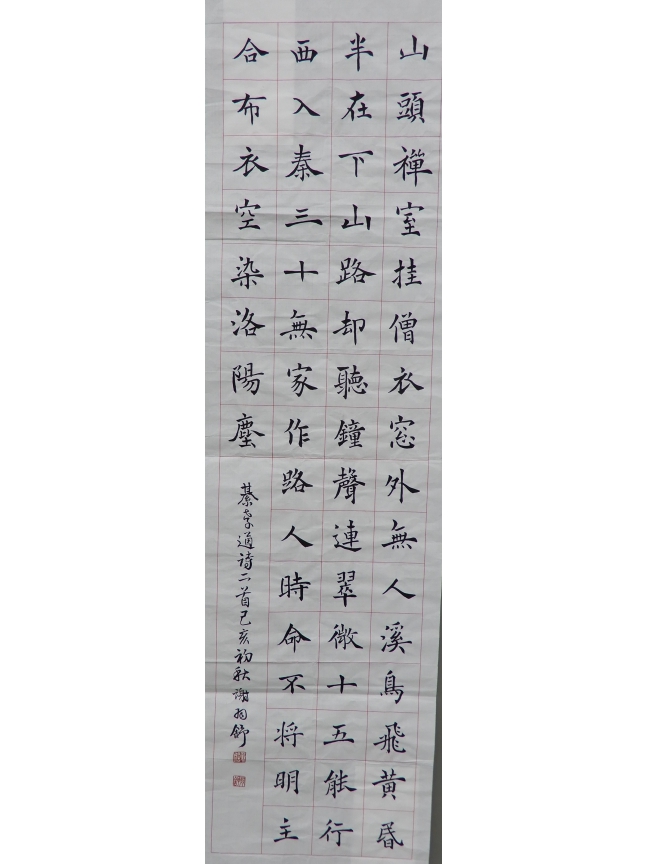 山頭禪室挂僧衣窓外無人溪鳥飛黄昏
半在下山路却聽鐘聲連翠微十五能行
西入秦三十無家作路人時命不將明主
合布衣空染洛陽塵
綦毋潜诗二首己亥初秋谢